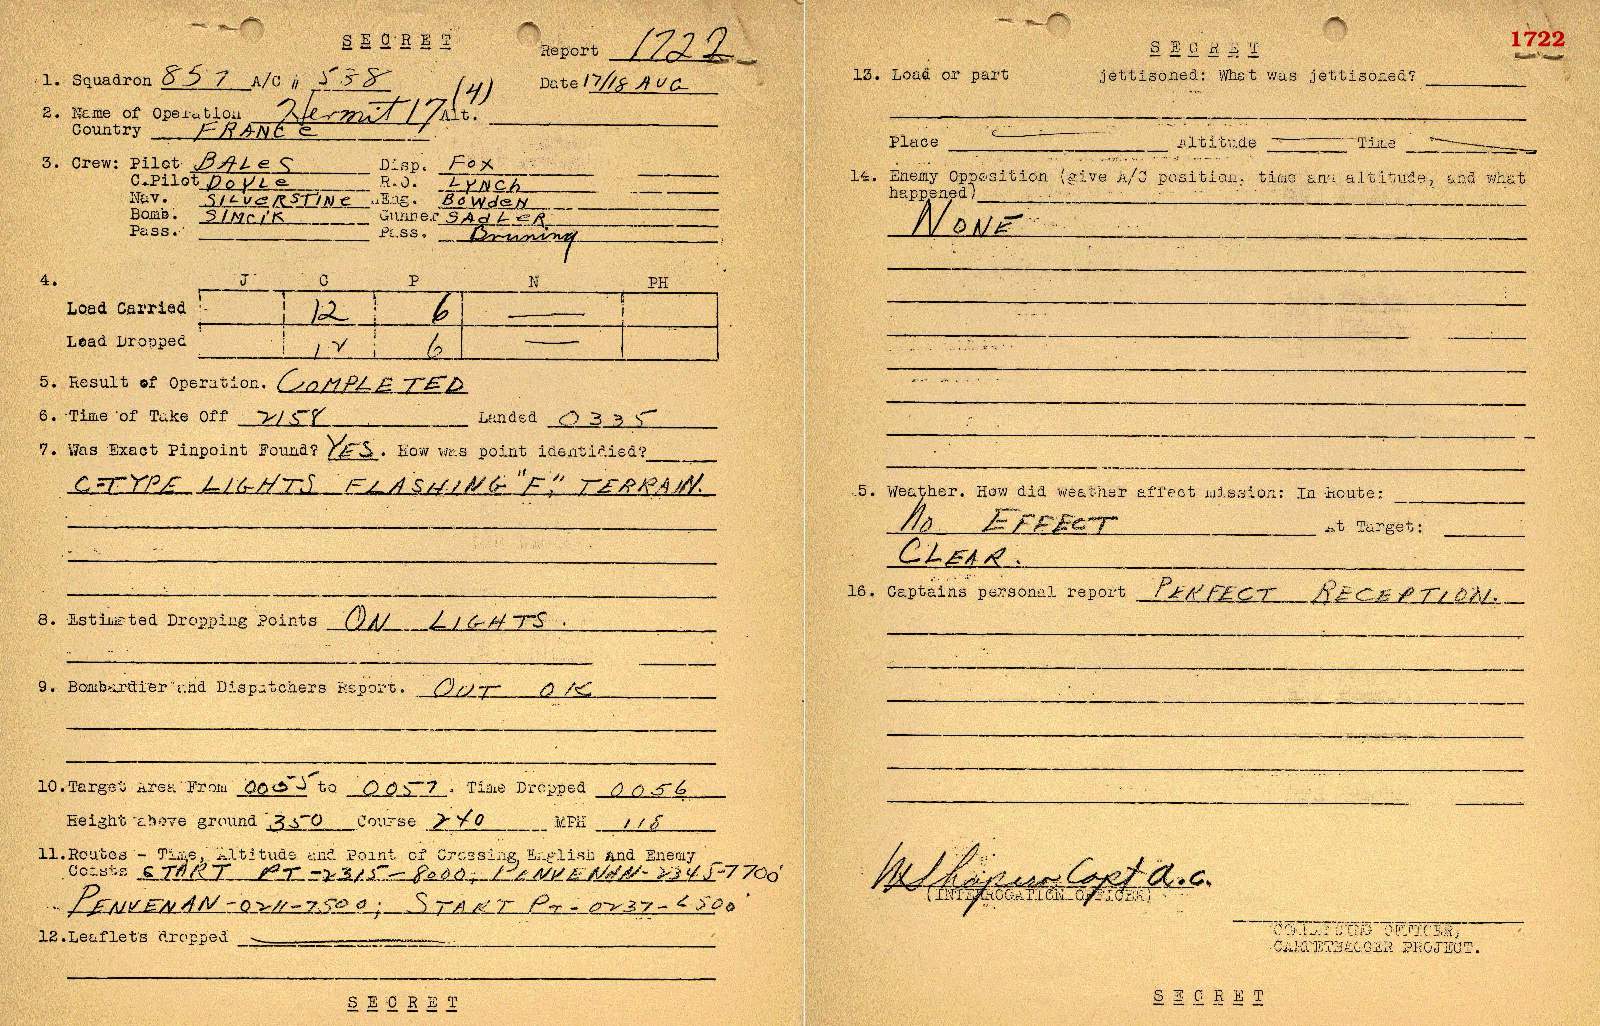 SECRET
Report 1722
1. Squadron 857 A/C # 538 Date 17/18 AUG
2. Name of Operation Hermit 17 (4) Alt.
Country FRANCE
3. Crew: Pilot BALES Disp. FOX
C.Pilot DOYLE R.O. LYNCH
Nav. SILVERSTINE Eng. BOWDEN
Bomb. SIMCIK Gunner SADLER
Pass. Pass. Bruning
4. J C P N PH
Load Carried 12 6 —
Load Dropped 12 6 —
5. Result of Operation. COMPLETED
6. Time of Take Off 2158 Landed 0335
7. Was Exact Pinpoint Found? YES. How was point identified?
C-TYPE LIGHTS FLASHING "F", TERRAIN.
8. Estimated Dropping Points ON LIGHTS.
9. Bombardier and Dispatchers Report. OUT OK
10. Target Area From 0055 to 0057. Time Dropped 0056
Height above ground 350 Course 240 MPH 118
11. Routes - Time, Altitude and Point of Crossing English And Enemy
Coasts START PT-2315-8000; PENVENAN-2345-7700'
PENVENAN-0211-7500; START PT-0237-6500'
12. Leaflets dropped
SECRET
SECRET
1722
13. Load or part jettisoned: What was jettisoned?
Place Altitude Time
14. Enemy Opposition (give A/C position, time and altitude, and what
happened)
NONE
5. Weather. How did weather affect mission: In Route:
No EFFECT At Target:
CLEAR.
16. Captains personal report PERFECT RECEPTION.
M Shapiro Capt A.C.
(INTERROGATION OFFICER)
COMMANDING OFFICER,
CARPETBAGGER PROJECT.
SECRET